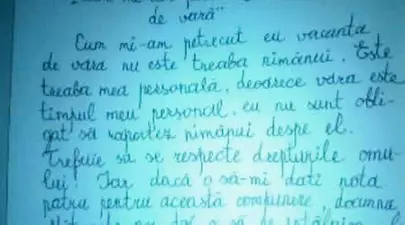 de vară"
Cum mi-am petrecut eu vacanta
de vara nu este treaba nimănui. Este
treaba mea personală, deoarece vara este
timpul meu personal, eu nu sunt obli-
gat să raportez nimănui despe el.
Trebuie să se respecte drepturile omu-
lui! Iar dacă o să-mi dati nota
patru pentru această compunere, doamna